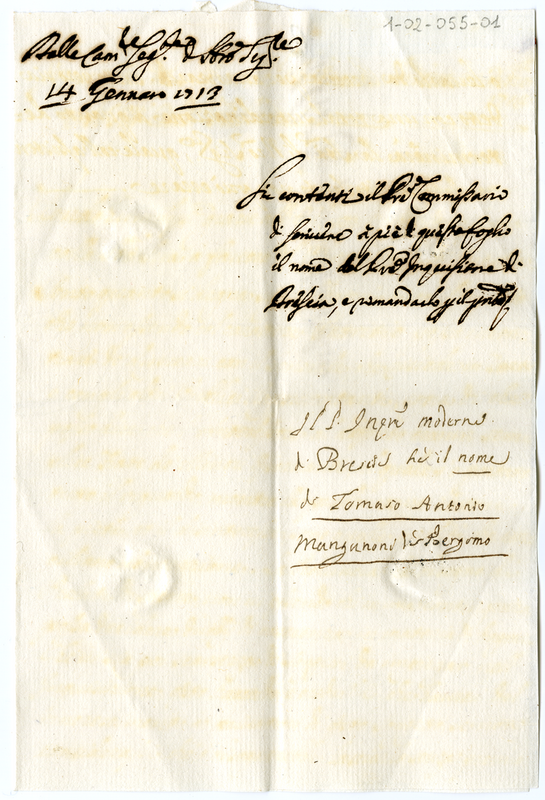 1-02-055-01
Dalle Cam.
14 Gennaro 1713
Si contenti il Pre Commissario
di scrivere à piè di questo foglio
il nome del Pre Inquisitore di
Brescia, e rimandarlo p il
Il P. Inqre moderno
di Brescia hà il nome
de Tomaso Antonio
Manganoni da Bergomo